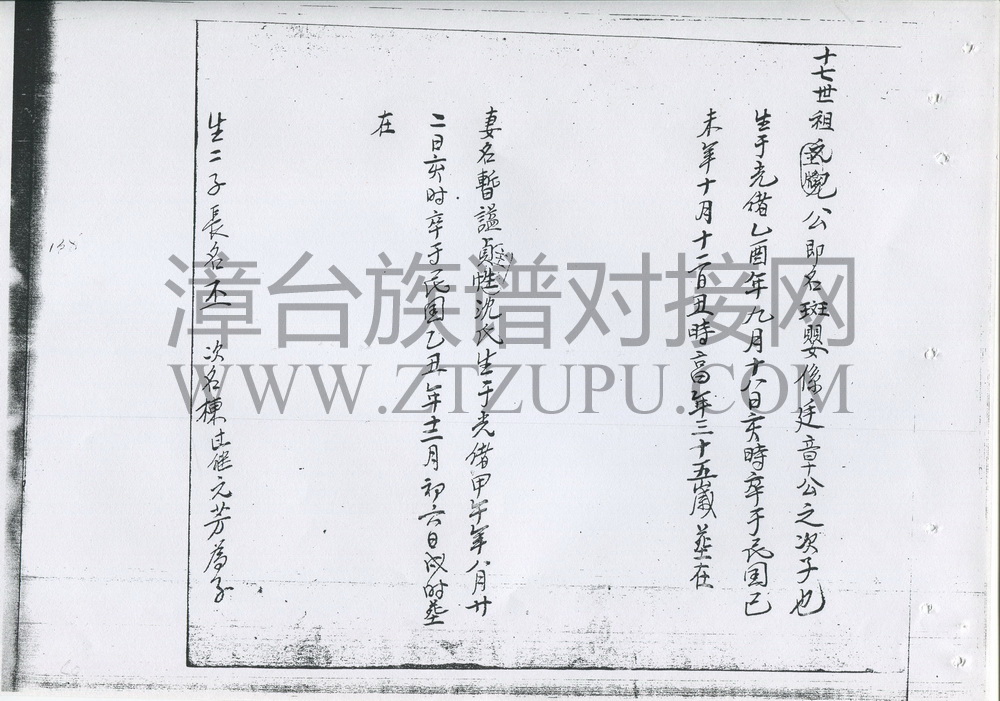 十七世祖公即名斑嬰係廷章公之次子也
生于光緒乙酉年九月十八日亥時卒于民国己
未年十月十二日丑時高年三十五歲葬在
妻名暫謚貞性沈氏生于光緒甲午年八月廿
二日亥时卒于民国乙丑年十二月初六日戌时葬
在
生二子長名丕 次名棟出继元芳為子
漳台族谱对接网
WWW.ZTZUPU.COM